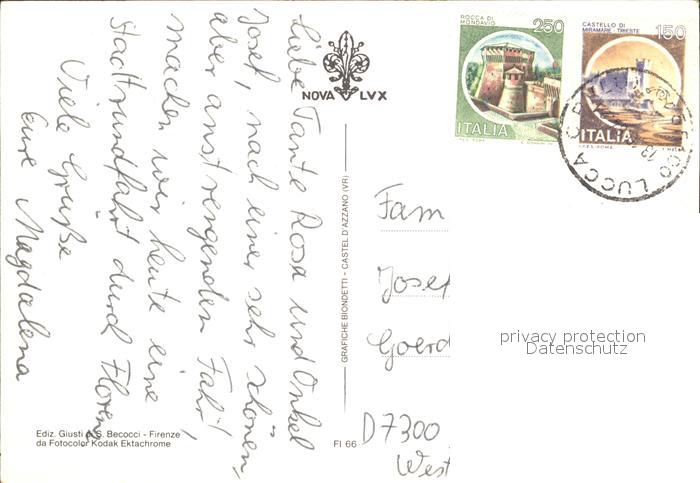 Liebe Tante Rosa und Onkel
Josef, nach einer sehr schönen,
aber anstrengenden Fahrt,
machen wir heute eine
Stadtrundfahrt durch Florenz
Viele Grüße
Eure Magdalena
NOVA LVX
ROCCA DI
MONDAVIO
250
ITALIA
CASTELLO DI
MIRAMARE - TRIESTE
150
ITALIA
LUCCA
GRAFICHE BIONDETTI - CASTEL D'AZZANO (VR)
Fam
Josef
Goerd
D 7300
West
privacy protection
Datenschutz
Ediz. Giusti di S. Becocci - Firenze
da Fotocolor Kodak Ektachrome
FI 66